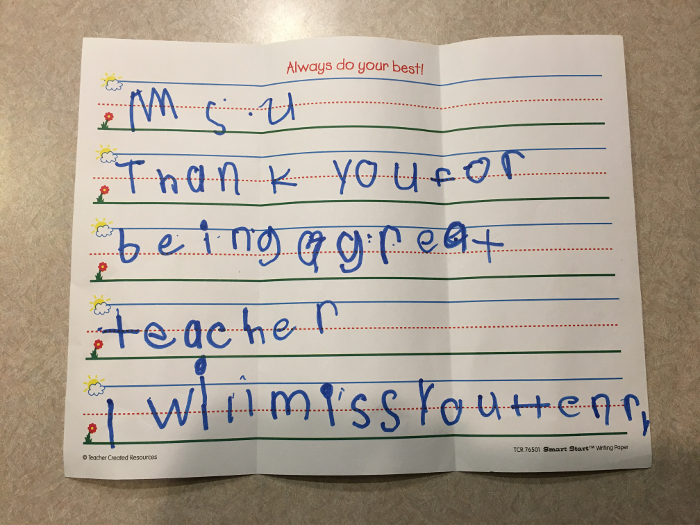 Always do your best!
Ms. U
Thank you for
being a great
teacher
I will miss You Henry
© Teacher Created Resources
TCR 76501 Smart Start™ Writing Paper